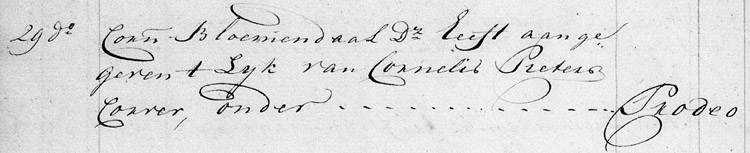 29 do Corn. Bloemendaal Dz. heeft aange,
geven t Lyk van Cornelis Pieters
Conver, onder - - - - - - - - - - Prodeo